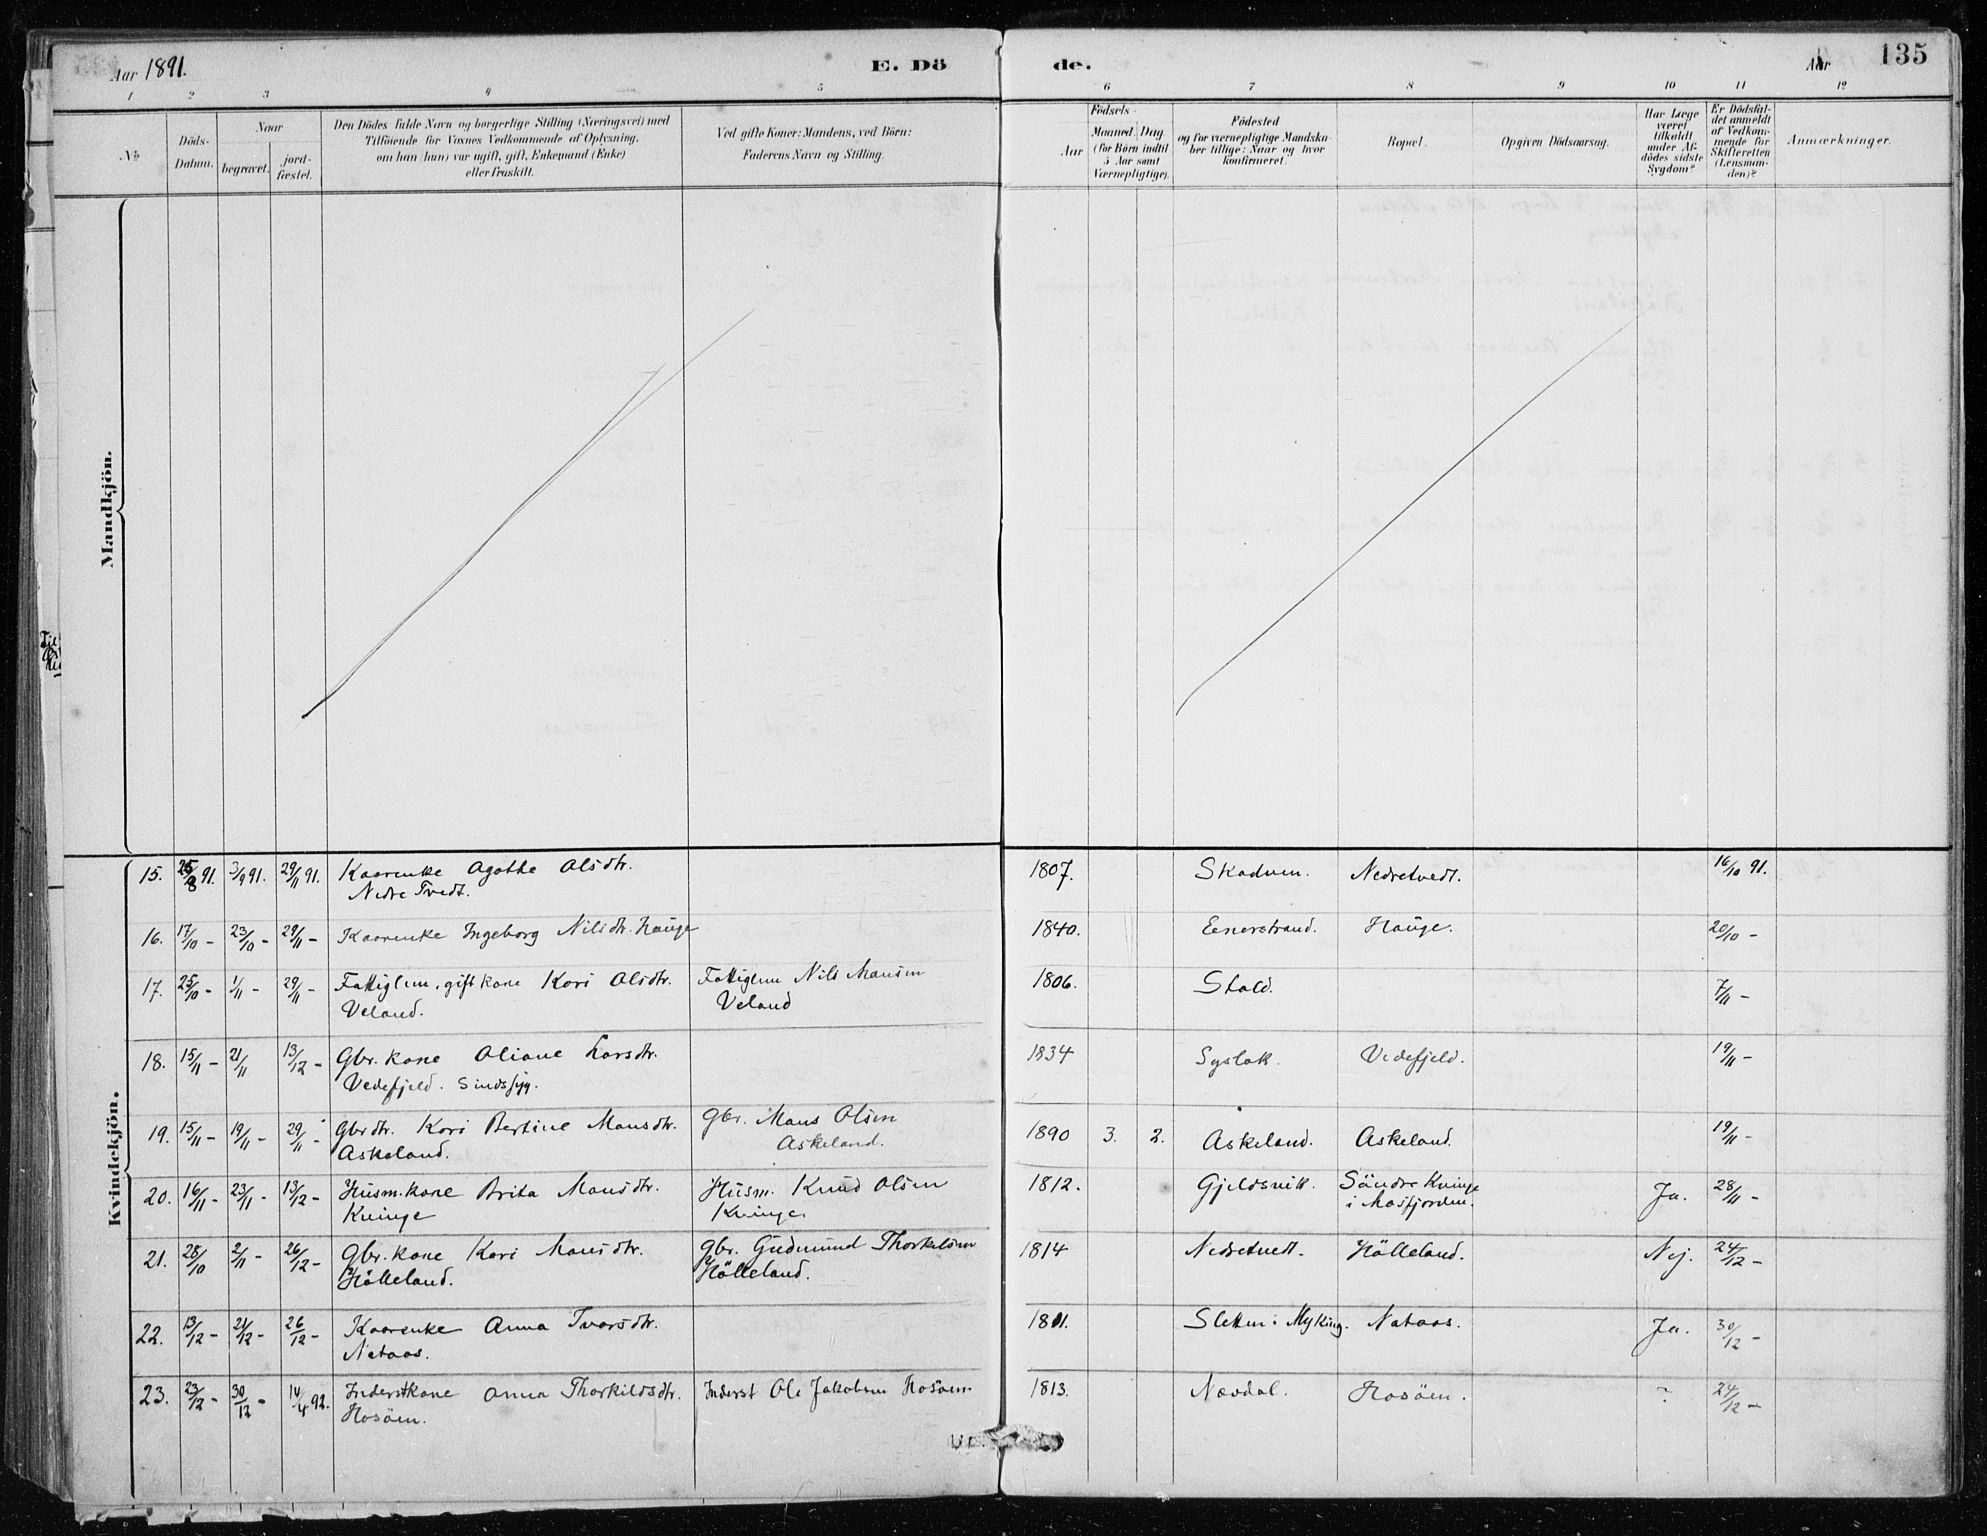 Aar 1891.
E. Dö
de.
Aar
135
1 2 3 4 5 6 7 8 9 10 11 12
No
Döds-Datum.
Naar
begravet.
jord-fæstet.
Den Dödes fulde Navn og borgerlige Stilling (Næringsvei) med
Tilföiende for Voxnes Vedkommende af Oplysning,
om han (hun) var ugift, gift, Enkemand (Enke)
eller fraskilt.
Ved gifte Koner: Mandens, ved Börn:
Faderens Navn og Stilling.
Födsels-
Aar
Maaned. Dag.
(for Börn indtil
5 Aar samt
Værnepligtige).
Födested
og for værnepligtige Mandska-
ber tillige: Naar og hvor
konfirmeret.
Bopæl.
Opgiven Dödsaarsag.
Har Læge
været
tilkaldt
under Af-
dödes sidste
Sygdom?
Er Dödsfal-
det anmeldt
af Vedkom-
mende for
Skifteretten
(Lensman-
den)?
Anmærkninger.
Mandkjön.
Kvindekjön.
15. 25/8 91. 3/9 91. 29/11 91. Kaarenke Agathe Olsdtr. 1807. Skodven. Nedretvedt. 16/10 91.
Nedre Tvedt.
16. 17/10 - 23/10 - 29/11 - Kaarenke Ingeborg Nilsdtr. Hauge 1840. Eenerstrand. Hauge. 20/10 -
17. 25/10 - 1/11 - 29/11 - Fattiglem, gift kone Kari Olsdtr. Fattiglem Nils Mansen 1806. Stald. 7/11 -
Veland. Veland
18. 15/11 - 21/11 13/12 - Gbr. kone Oliane Larsdtr. 1834 Syslak. Vedefjeld. 19/11 -
Vedefjeld. Sindssyg.
19. 15/11 - 19/11 - 29/11 - Gbrdtr. Kari Bertine Mansdtr. Gbr. Mans Olsen 1890 3. 2. Askeland. Askeland. 19/11 -
Askeland. Askeland.
20. 16/11 - 23/11 - 13/12 - Husm. kone Brita Mansdtr. Husm. Knud Olsen 1812. Gjeldsvik. Söndre Kvinge Ja. 28/11 -
Kvinge Kvinge. i Masfjorden.
21. 28/10 2/11 - 26/12 - Gbr. kone Kari Mansdtr. Gbr. Gudmund Thorkildsen 1814 Nedretvedt. Hölleland. Nej. 24/12 -
Hölleland. Hölleland.
22. 13/12 - 21/12 - 26/12 - Kaarenke Anna Ivarsdtr. 1811. Sletten i Myking. Nataas. Ja. 30/12 -
Nataas.
23. 23/12 - 30/12 - 14/4 92. Inderstkone Anna Thorkildsdtr. Inderst Ole Jakobsen Hosöen. 1813. Nævdal. Hosöen. ? 24/12 -
Hosöen.